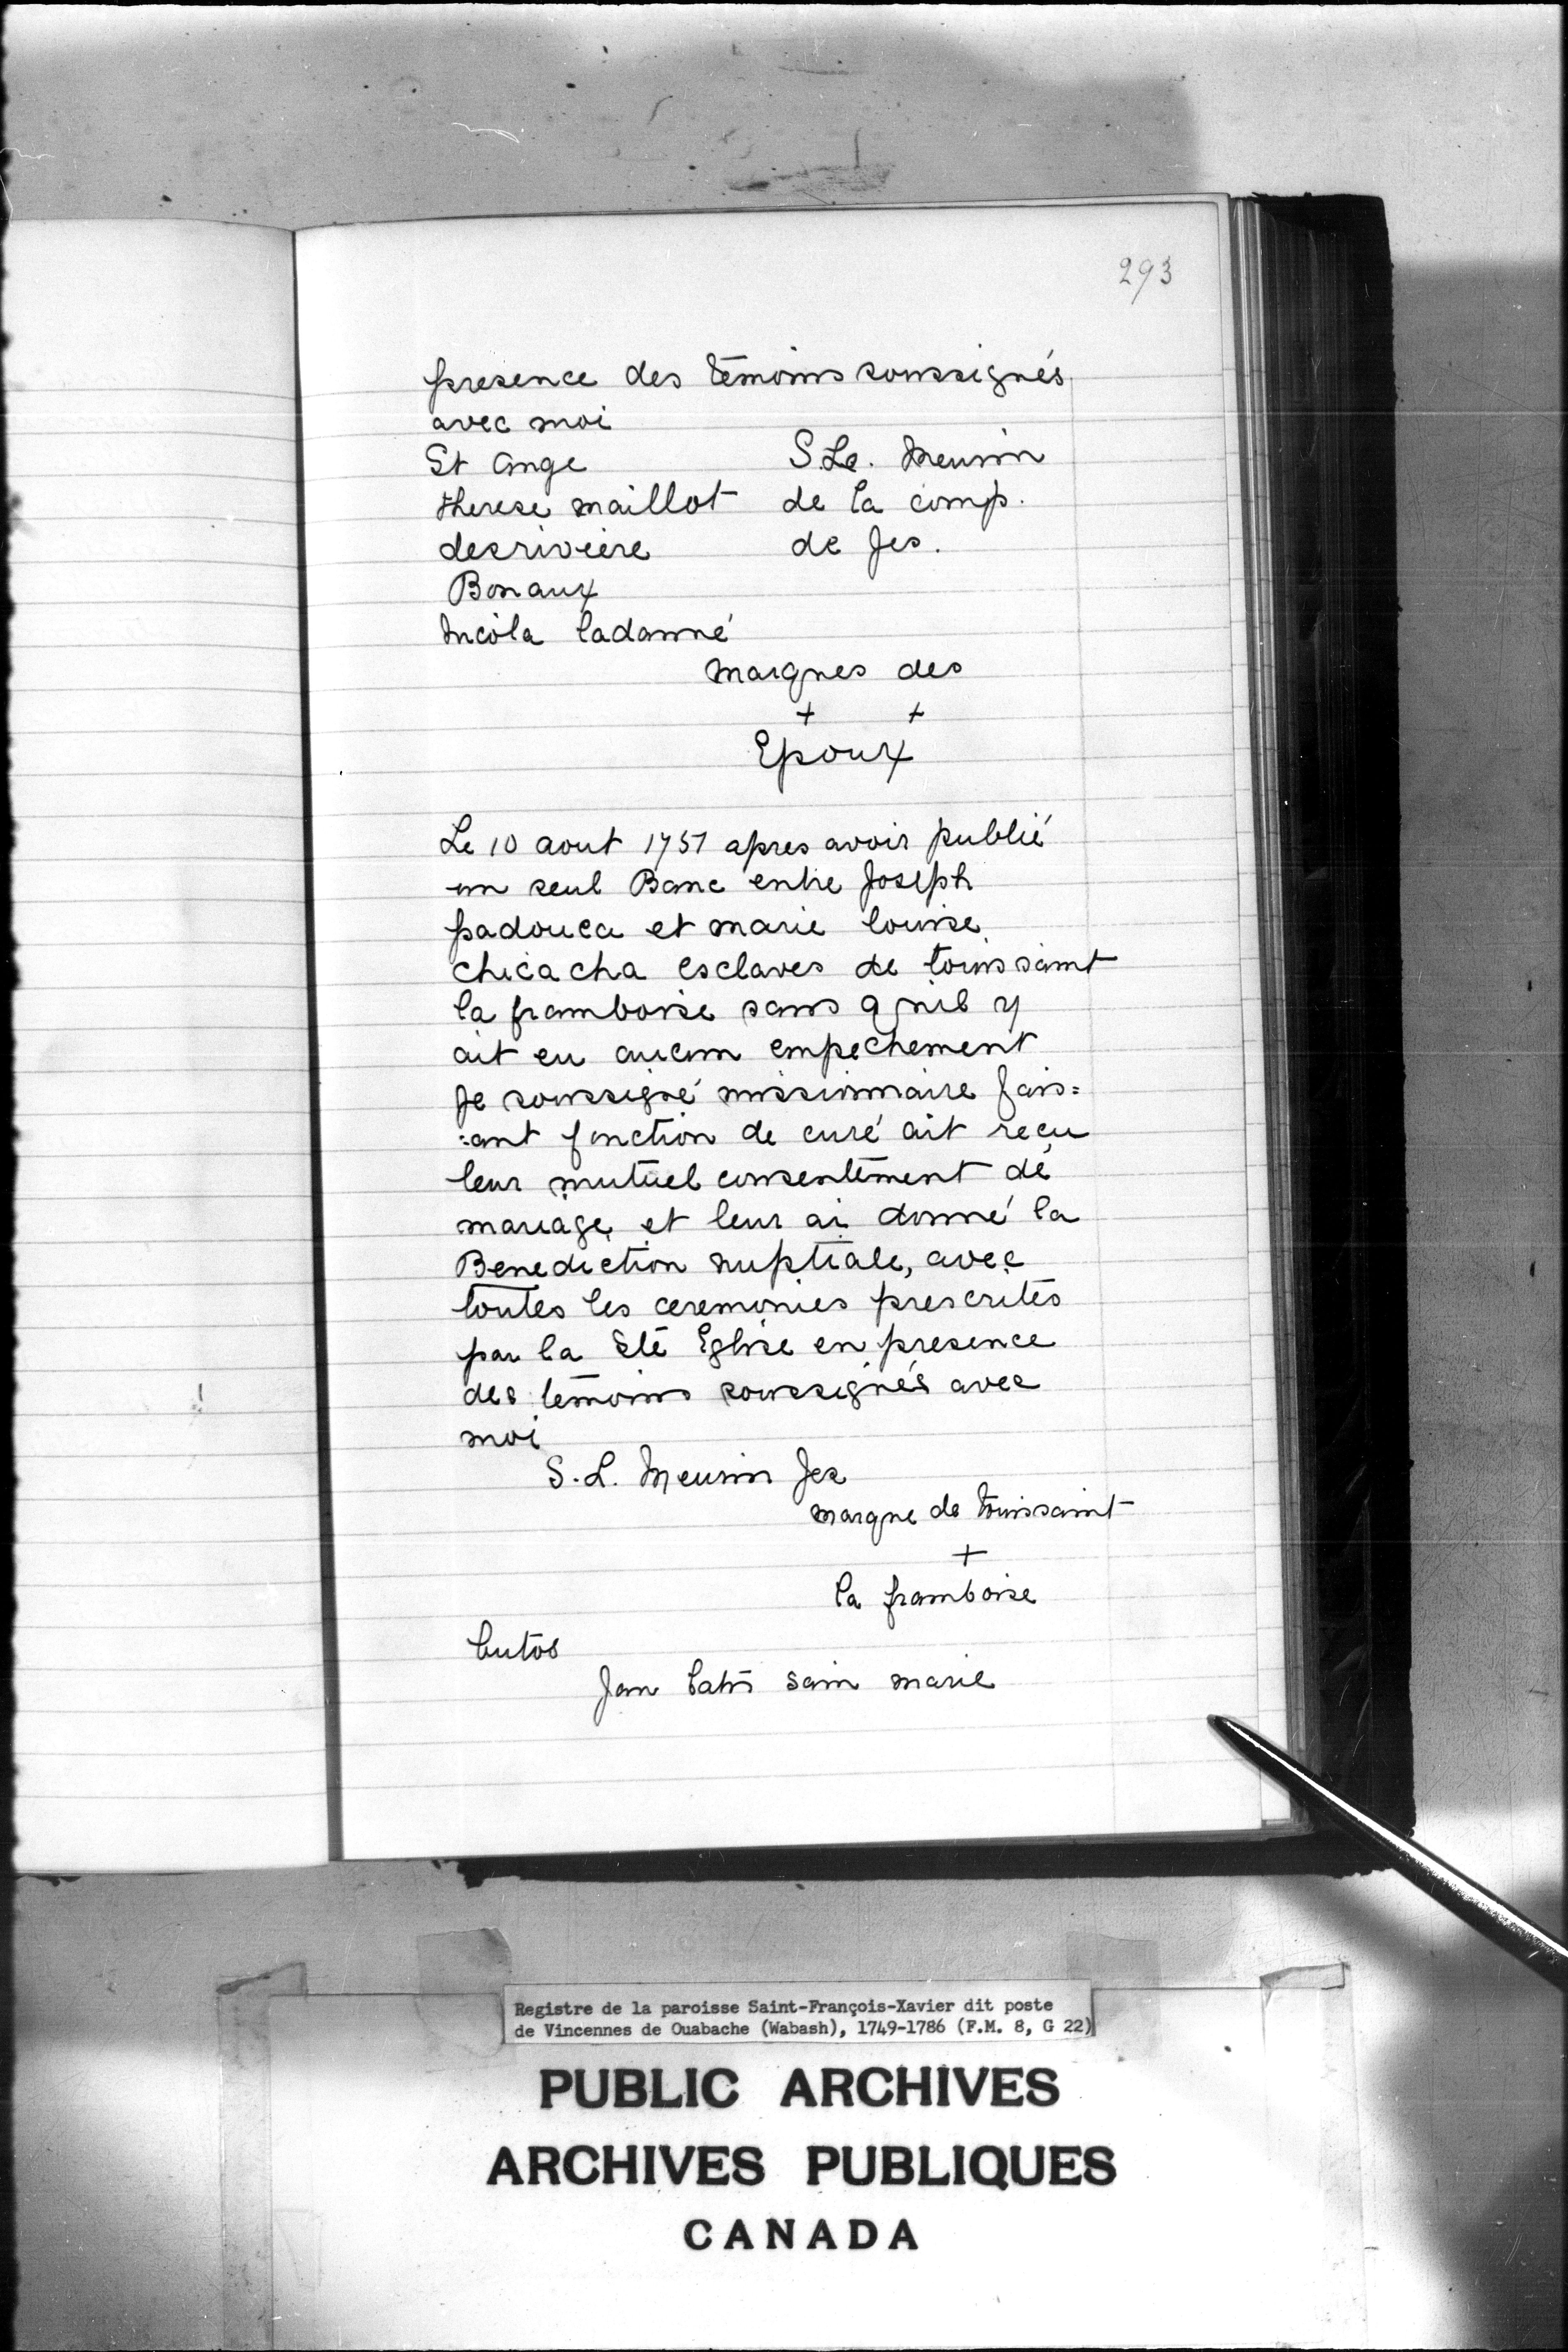 293
presence des témoins soussignés
avec moi
St Ange S.Le. Meurin
therese maillot de la comp.
desriviere de Jes.
Bonaux
Nicola Cadonné
Marques des
+ +
Epoux
Le 10 aout 1757 apres avoir publié
un seul Banc entre Joseph
padouca et marie louise
chicacha esclaves de toussaint
la framboise sans qu'il y
ait eu aucun empechement
Je soussigné missionnaire fais=
=ant fonction de curé ait reçu
leur mutuel consentement de
mariage et leur ai donné la
Benediction nuptiale, avec
toutes les ceremonies prescrites
par la Ste Eglise en presence
des témoins soussignés avec
moi
S.L. Meurin Jes
marque de toussaint
+
la framboise
Jan batis sain marie
Registre de la paroisse Saint-François-Xavier dit poste
de Vincennes de Ouabache (Wabash), 1749-1786 (F.M. 8, G 22)
PUBLIC ARCHIVES
ARCHIVES PUBLIQUES
CANADA